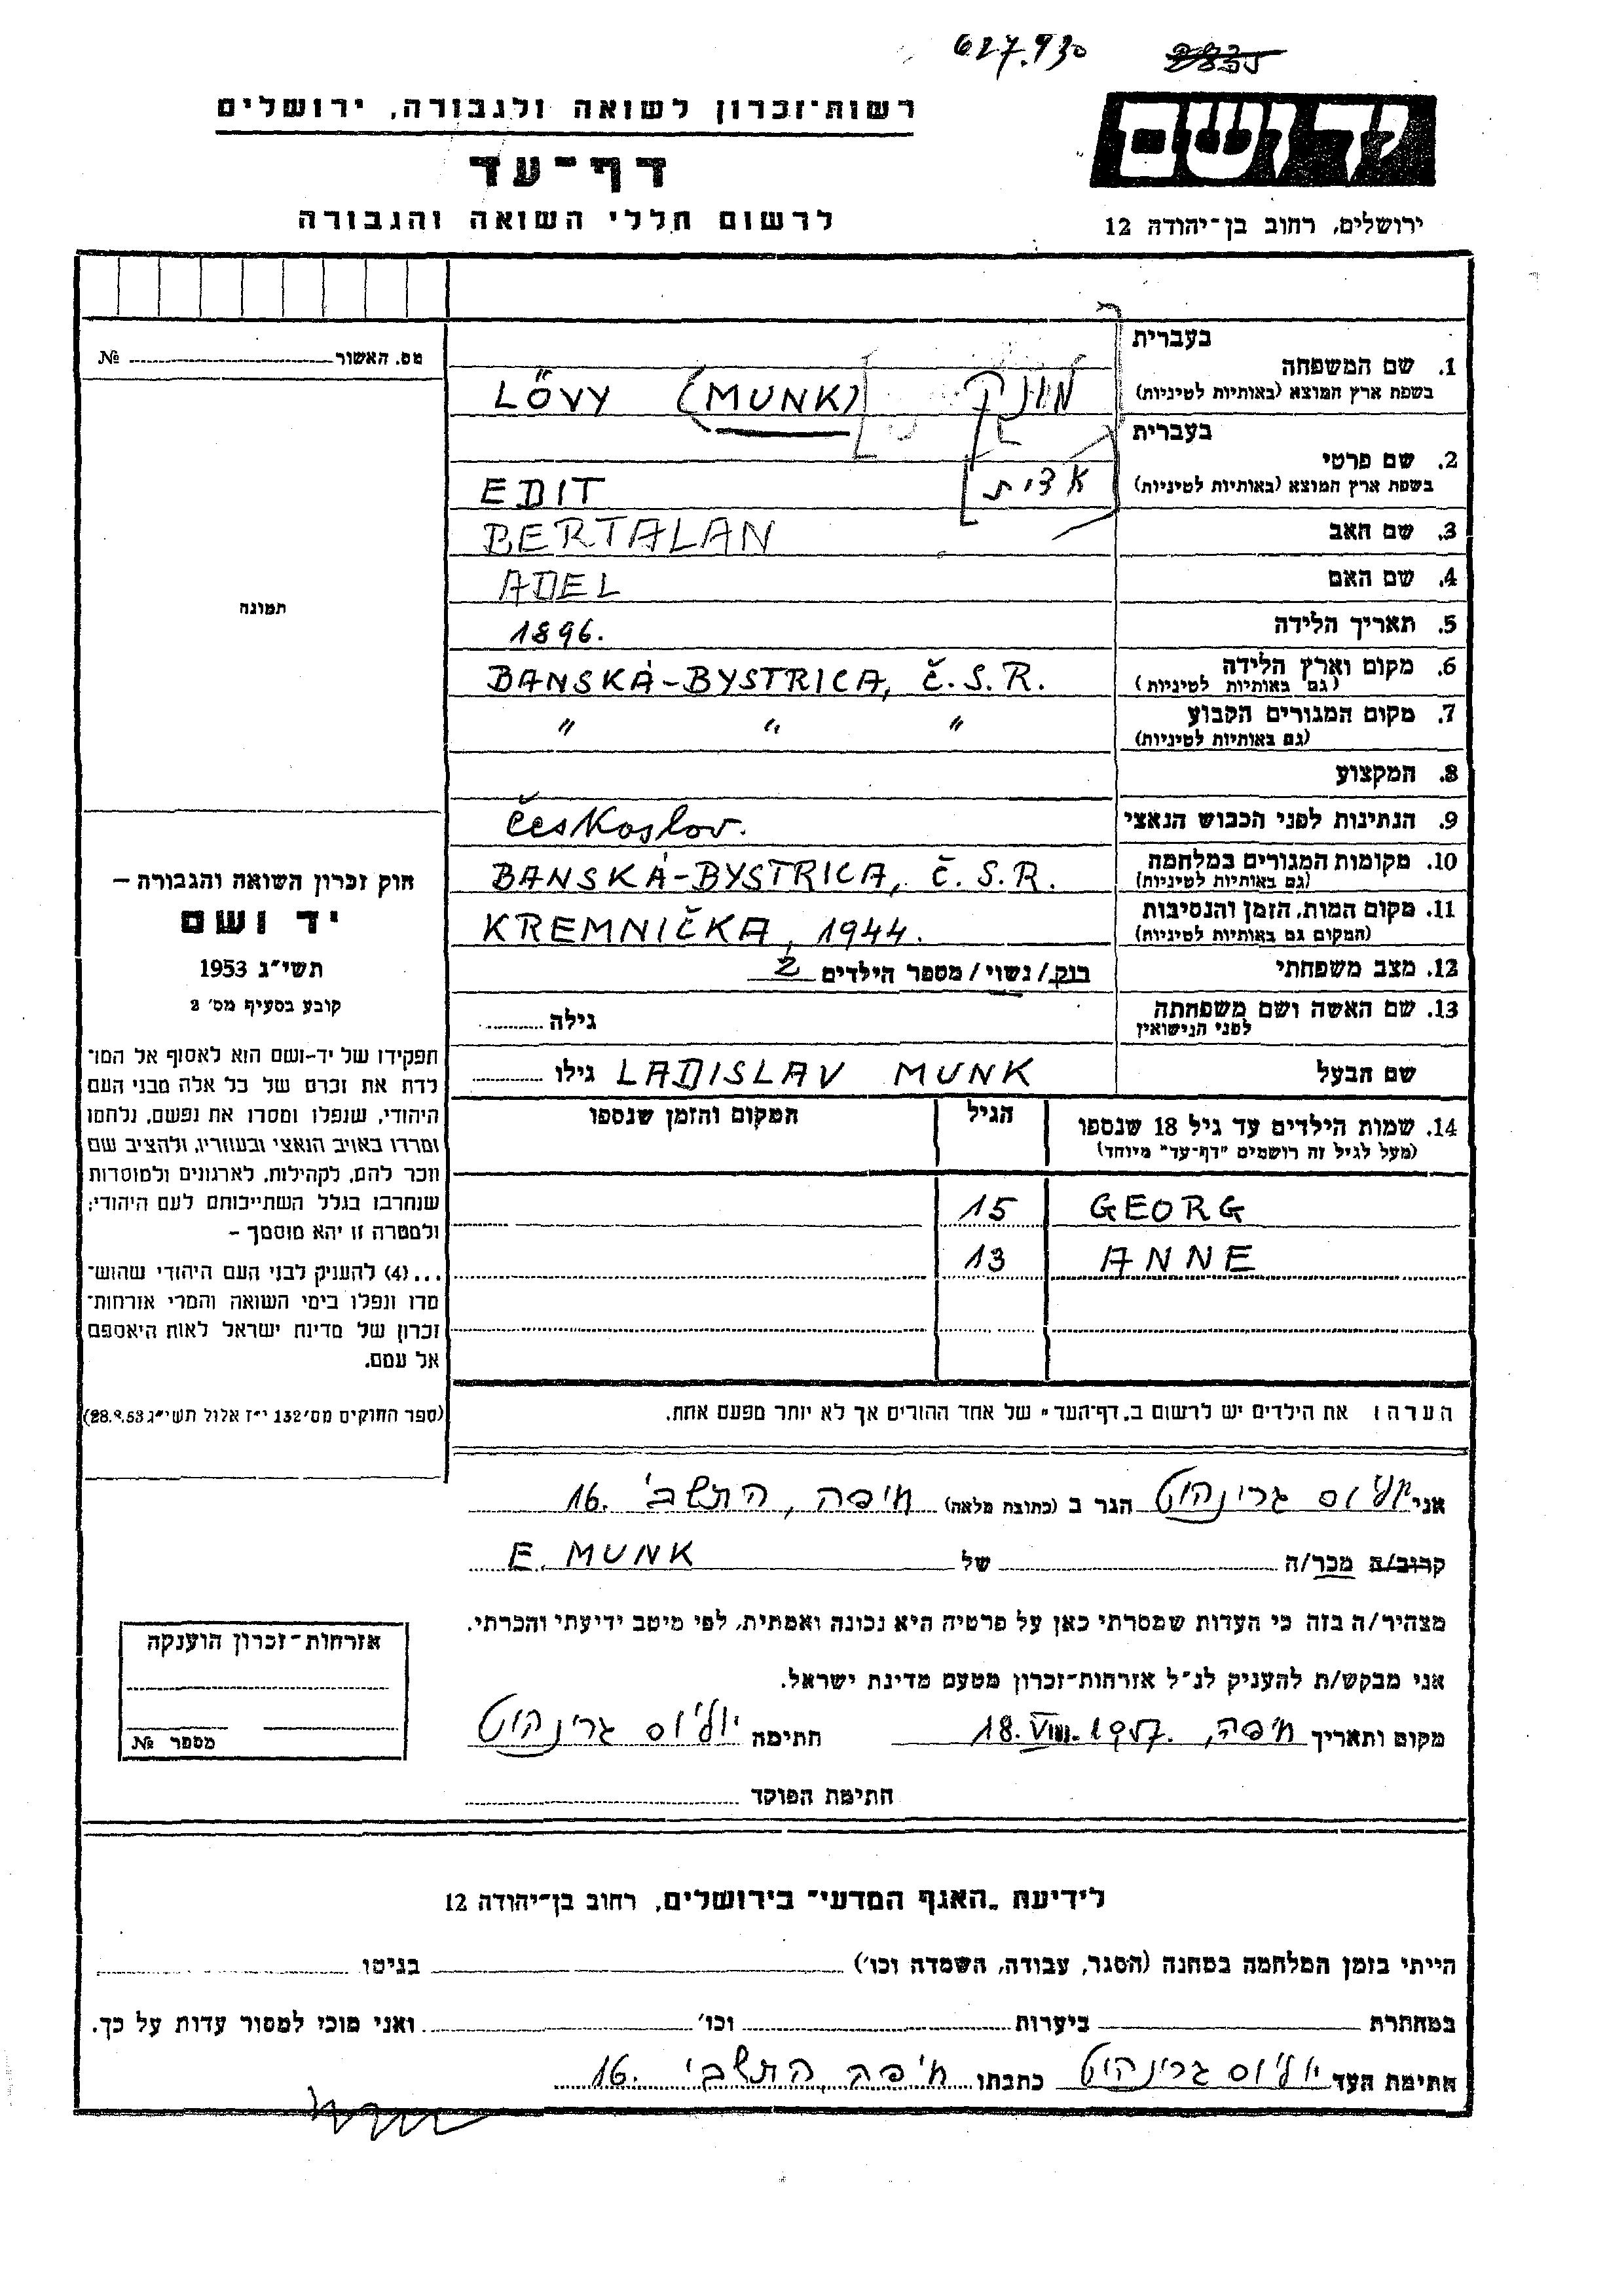 627.930 2835
רשות-זכרון לשואה ולגבורה, ירושלים
יד ושם
דף-עד
לרשום חללי השואה והגבורה
ירושלים, רחוב בן-יהודה 12
מס. האשור № 
בעברית
1. שם המשפחה
בשפת ארץ המוצא (באותיות לטיניות)
LŐVY (MUNK) מונק
בעברית
2. שם פרטי
בשפת ארץ המוצא (באותיות לטיניות)
EDIT אדית
3. שם האב BERTALAN
4. שם האם ADEL
5. תאריך הלידה 1896.
6. מקום וארץ הלידה BANSKÁ-BYSTRICA, Č.S.R.
(גם באותיות לטיניות)
7. מקום המגורים הקבוע " " "
(גם באותיות לטיניות)
8. המקצוע
9. הנתינות לפני הכבוש הנאצי Českoslov.
10. מקומות המגורים במלחמה BANSKÁ-BYSTRICA, Č.S.R.
(גם באותיות לטיניות)
11. מקום המות, הזמן והנסיבות KREMNIČKA, 1944.
(המקום גם באותיות לטיניות)
12. מצב משפחתי רווק/נשוי/מספר הילדים 2
13. שם האשה ושם משפחתה
לפני הנישואין
גילה
שם הבעל LADISLAV MUNK גילו
14. שמות הילדים עד גיל 18 שנספו הגיל המקום והזמן שנספו
(מעל לגיל זה רושמים "דף-עד" מיוחד)
GEORG 15
ANNE 13
הערה: את הילדים יש לרשום ב"דף-העד" של אחד ההורים אך לא יותר מפעם אחת.
תמונה
חוק זכרון השואה והגבורה –
יד ושם
תשי"ג 1953
קובע בסעיף מס' 2
תפקידו של יד-ושם הוא לאסוף אל המו-
לדת את זכרם של כל אלה מבני העם
היהודי, שנפלו ומסרו את נפשם, נלחמו
ומרדו באויב הנאצי ובעוזריו, ולהציב שם
וזכר להם, לקהילות, לארגונים ולמוסדות
שנחרבו בגלל השתייכותם לעם היהודי;
ולמטרה זו יהא מוסמך –
...(4) להעניק לבני העם היהודי שהוש-
מדו ונפלו בימי השואה והמרי אזרחות-
זכרון של מדינת ישראל לאות היאספם
אל עמם.
(ספר החוקים מס' 132 י"ז אלול תשי"ג 28.8.53)
אני יוליוס גרינהוט הגר ב (כתובת מלאה) חיפה, התשבי 16.
קרוב/ה מכר/ה של E. MUNK
מצהיר/ה בזה כי העדות שמסרתי כאן על פרטיה היא נכונה ואמתית, לפי מיטב ידיעתי והכרתי.
אני מבקש/ת להעניק לנ"ל אזרחות-זכרון מטעם מדינת ישראל.
מקום ותאריך חיפה, 18. VIII. 1957. חתימה יוליוס גרינהוט
חתימת הפוקד
אזרחות-זכרון הוענקה
מספר №
לידיעת "האגף המדעי" בירושלים, רחוב בן-יהודה 12
הייתי בזמן המלחמה במחנה (הסגר, עבודה, השמדה וכו') בגיטו
במחתרת ביערות וכו' ואני מוכן למסור עדות על כך.
חתימת העד יוליוס גרינהוט כתבתו חיפה, התשבי 16.